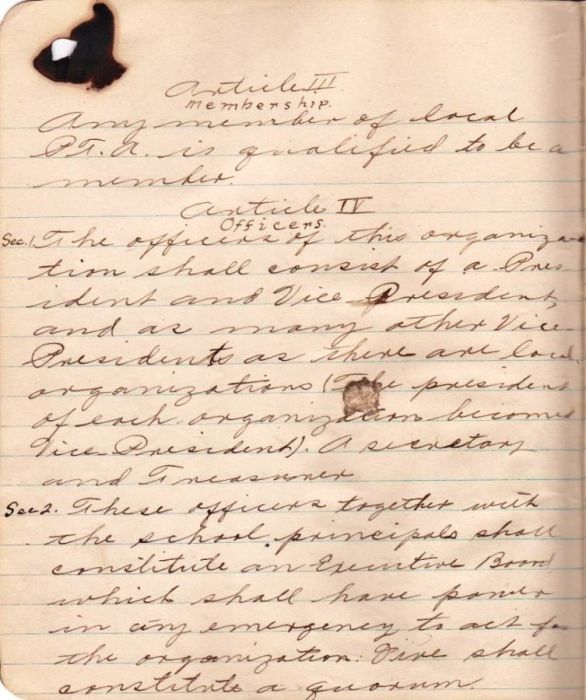 Article III
Membership.
Any member of local
P.T.A. is qualified to be a
member.
Article IV
Officers.
Sec. 1. The officers of this organiza-
tion shall consist of a Pres-
ident and Vice President,
and as many other Vice-
Presidents as there are local
organizations (The president
of each organization becomes
Vice President). A secretary
and Treasurer
Sec 2. These officers together with
the school principals shall
constitute an Executive Board
which shall have power
in any emergency to act for
the organization. Five shall
constitute a quorum.